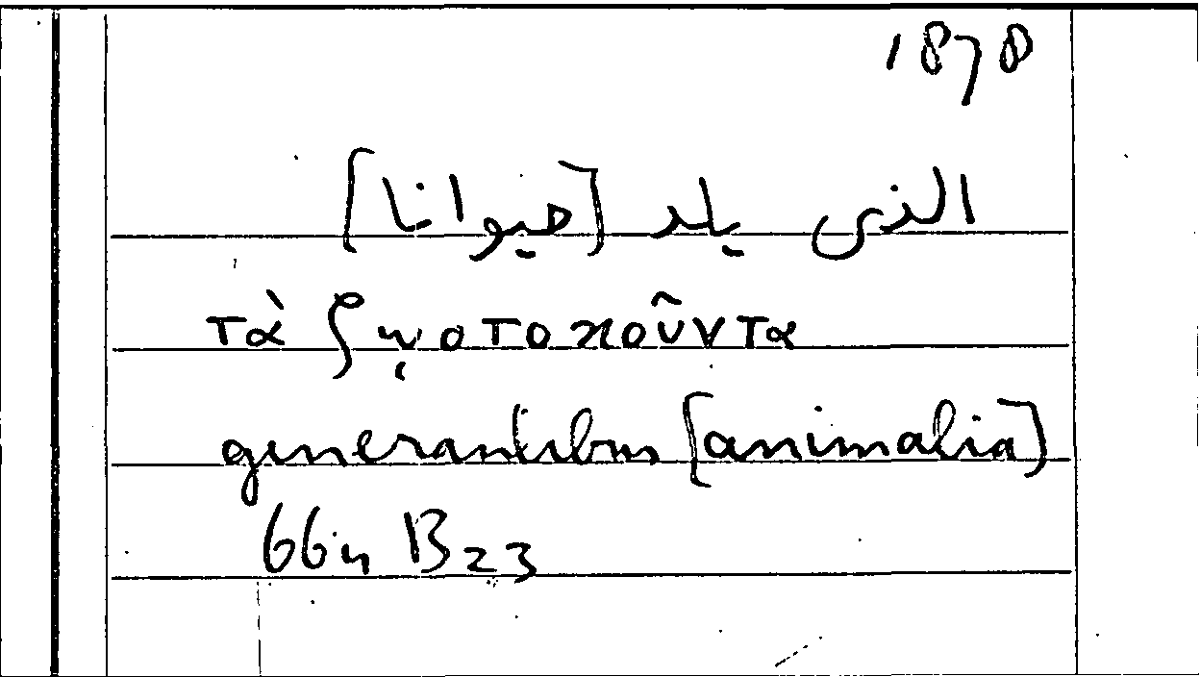 1878
الذى يلد [حيوانا]
τὰ ζῳοτοκοῦντα
generantibus [animalia]
664 B23